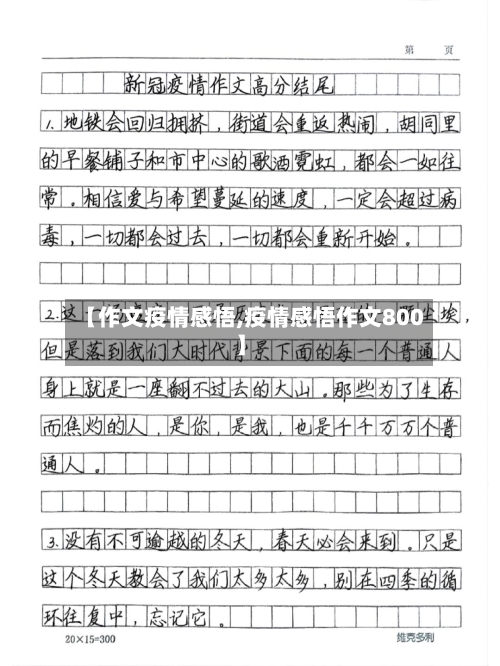 第 页
新冠疫情作文高分结尾
1.地铁会回归拥挤，街道会重返热闹，胡同里
的早餐铺子和市中心的歌酒霓虹，都会一如往
常。相信爱与希望蔓延的速度，一定会超过病
毒，一切都会过去，一切都会重新开始。
2.这 尘埃，
【作文疫情感悟,疫情感悟作文800
】
但是落到我们大时代背景下面的每一个普通人
身上就是一座翻不过去的大山。那些为了生存
而焦灼的人，是你，是我，也是千千万万个普
通人。
3.没有不可逾越的冬天，春天必会来到。只是
这个冬天教会了我们太多太多，别在四季的循
环往复中，忘记它。
20×15=300 维克多利